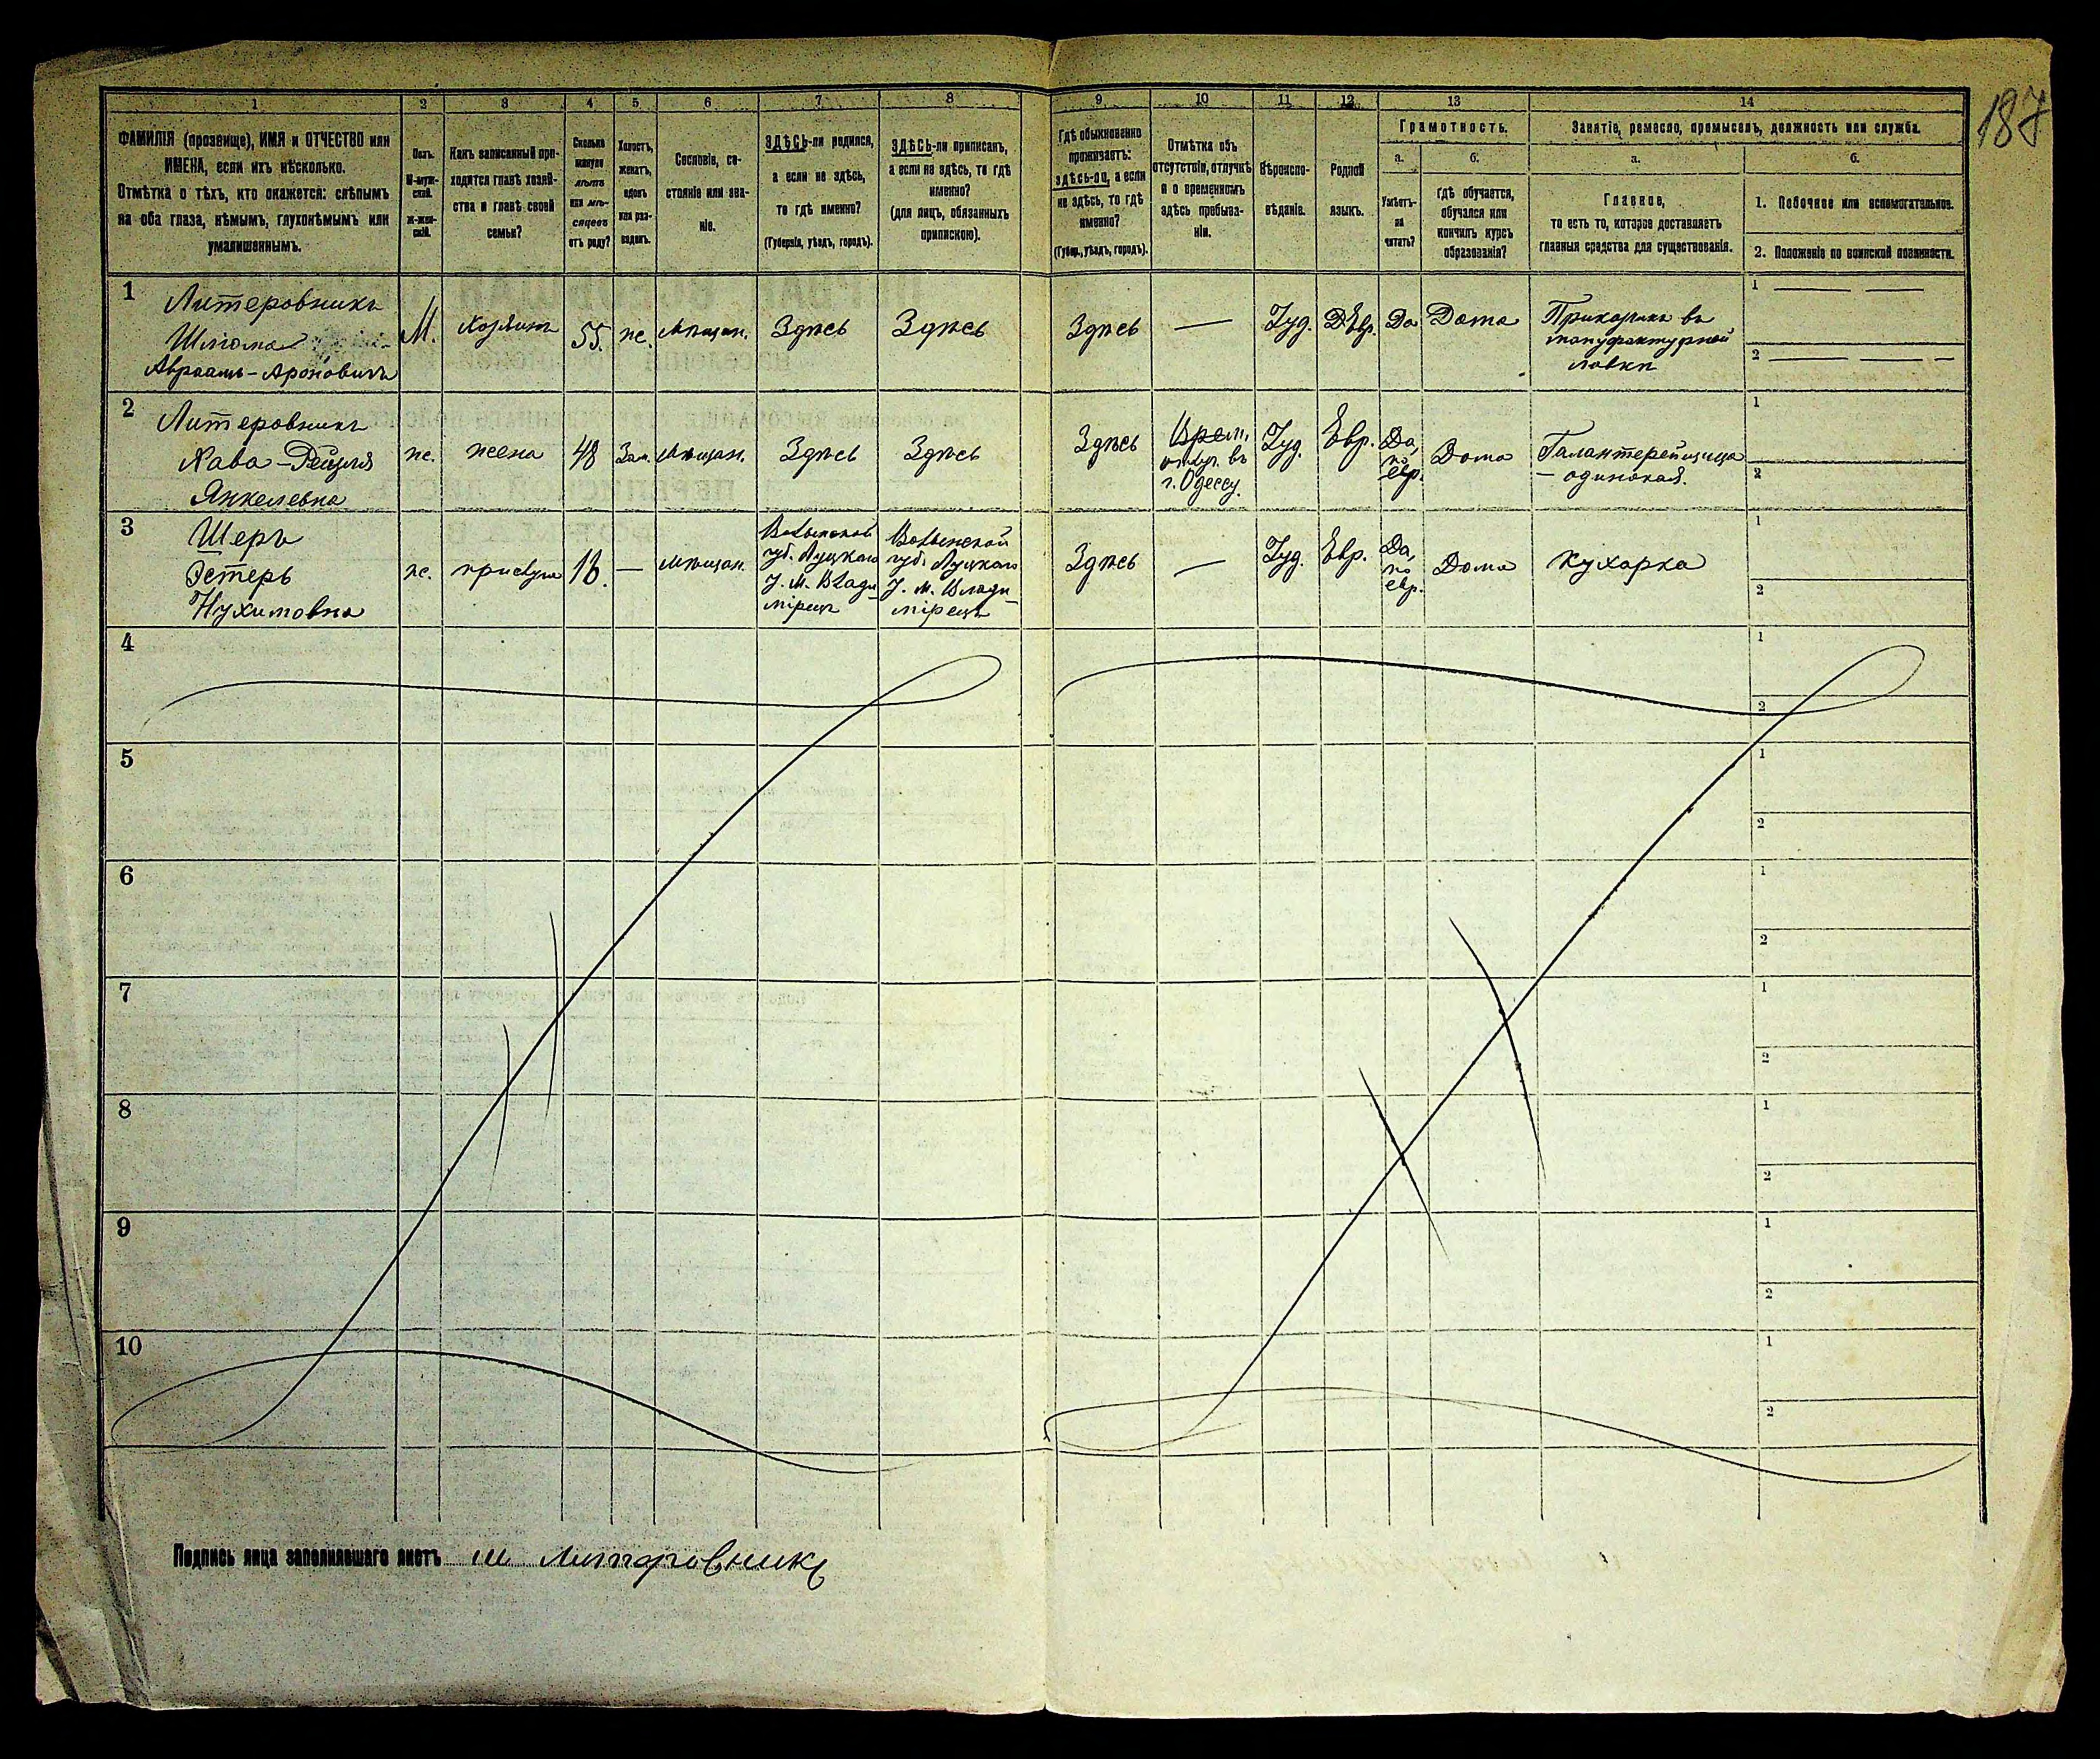 187
1 2 3 4 5 6 7 8 9 10 11 12 13 14
ФАМИЛІЯ (прозвище), ИМЯ и ОТЧЕСТВО или
ИМЕНА, если ихъ нѣсколько.
Отмѣтка о тѣхъ, кто окажется: слѣпымъ
на оба глаза, нѣмымъ, глухонѣмымъ или
умалишеннымъ.
Полъ.
М-муж-
ской.
Ж-жен-
скій.
Какъ записанный при-
ходится главѣ хозяй-
ства и главѣ своей
семьи?
Сколько
минуло
лѣтъ
или мѣ-
сяцевъ
отъ роду?
Холостъ,
женатъ,
вдовъ
или раз-
веденъ.
Сословіе, со-
стояніе или зва-
ніе.
ЗДѢСЬ-ли родился,
а если не здѣсь,
то гдѣ именно?
(Губернія, уѣздъ, городъ).
ЗДѢСЬ-ли приписанъ,
а если не здѣсь, то гдѣ
именно?
(для лицъ, обязанныхъ
припискою).
Гдѣ обыкновенно
проживаетъ:
здѣсь-ли, а если
не здѣсь, то гдѣ
именно?
(Губер., уѣздъ, городъ).
Отмѣтка объ
отсутствіи, отлучкѣ
и о временномъ
здѣсь пребыва-
ніи.
Вѣроиспо-
вѣданіе.
Родной
языкъ.
Грамотность.
а.
Умѣетъ-
ли
читать?
б.
Гдѣ обучается,
обучался или
кончилъ курсъ
образованія?
Занятіе, ремесло, промыселъ, должность или служба.
а.
Главное,
то есть то, которое доставляетъ
главныя средства для существованія.
б.
1. Побочное или вспомогательное.
2. Положеніе по воинской повинности.
1
Литеровникъ
Шліома
Авраамъ-Ароновичъ
М.
Хозяинъ
55.
же.
Мѣщан.
Здѣсь
Здѣсь
Здѣсь
—
Іуд.
Евр.
Да
Дома
Прикащикъ въ
мануфактурной
лавкѣ
1 — —
2 — — —
2
Литеровникъ
Хава-Рейзля
Янкелевна
же.
жена
48
Зам.
Мѣщан.
Здѣсь
Здѣсь
Здѣсь
Врем.
отлуч. въ
г. Одессу.
Іуд.
Евр.
Да,
по
евр.
Дома
Галантерейщица
— одинокая.
1
2
3
Шеръ
Эстеръ
Нухимовна
же.
прислуга
—
Мѣщан.
Волынской
губ. Луцкаго
у. м. Влади-
мірецъ
Волынской
губ. Луцкаго
у. м. Влади-
мірецъ
Здѣсь
—
Іуд.
Евр.
Да,
по
евр.
Дома
Кухарка
1
2
4
1
2
5
1
2
6
1
2
7
1
2
8
1
2
9
1
2
10
1
2
Подпись лица заполнявшаго листъ Ш Литеровникъ